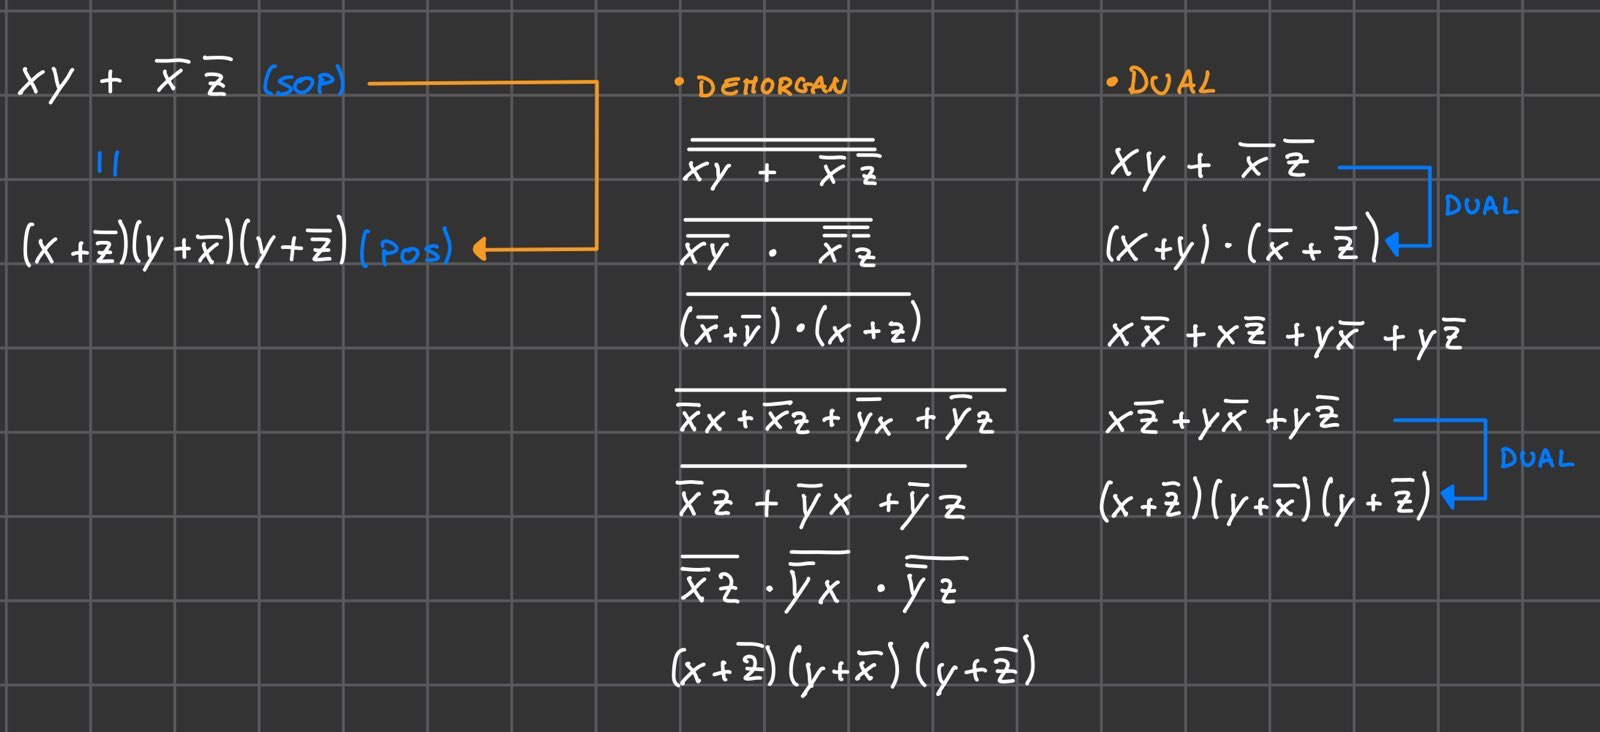 xy + x̅ z̅ (SOP)
=
(x + z̅)(y + x̅)(y + z̅) (POS)
• DEMORGAN
x̿y̿ ̿+̿ ̿x̿̅ ̿z̿̅
x̅y̅ · x̿̅ z̿̅
(̅x̅̅+̅y̅̅)̅ ̅·̅ ̅(̅x̅ ̅+̅ ̅z̅)̅
x̅̅x̅ ̅+̅ ̅x̅̅z̅ ̅+̅ ̅y̅̅x̅ ̅+̅ ̅y̅̅z̅
x̅̅z̅ ̅+̅ ̅y̅̅x̅ ̅+̅ ̅y̅̅z̅
x̅̅z̅ · y̅̅x̅ · y̅̅z̅
(x + z̅)(y + x̅)(y + z̅)
• DUAL
xy + x̅ z̅
DUAL
(x + y) · (x̅ + z̅)
xx̅ + xz̅ + yx̅ + yz̅
xz̅ + yx̅ + yz̅
DUAL
(x + z̅)(y + x̅)(y + z̅)